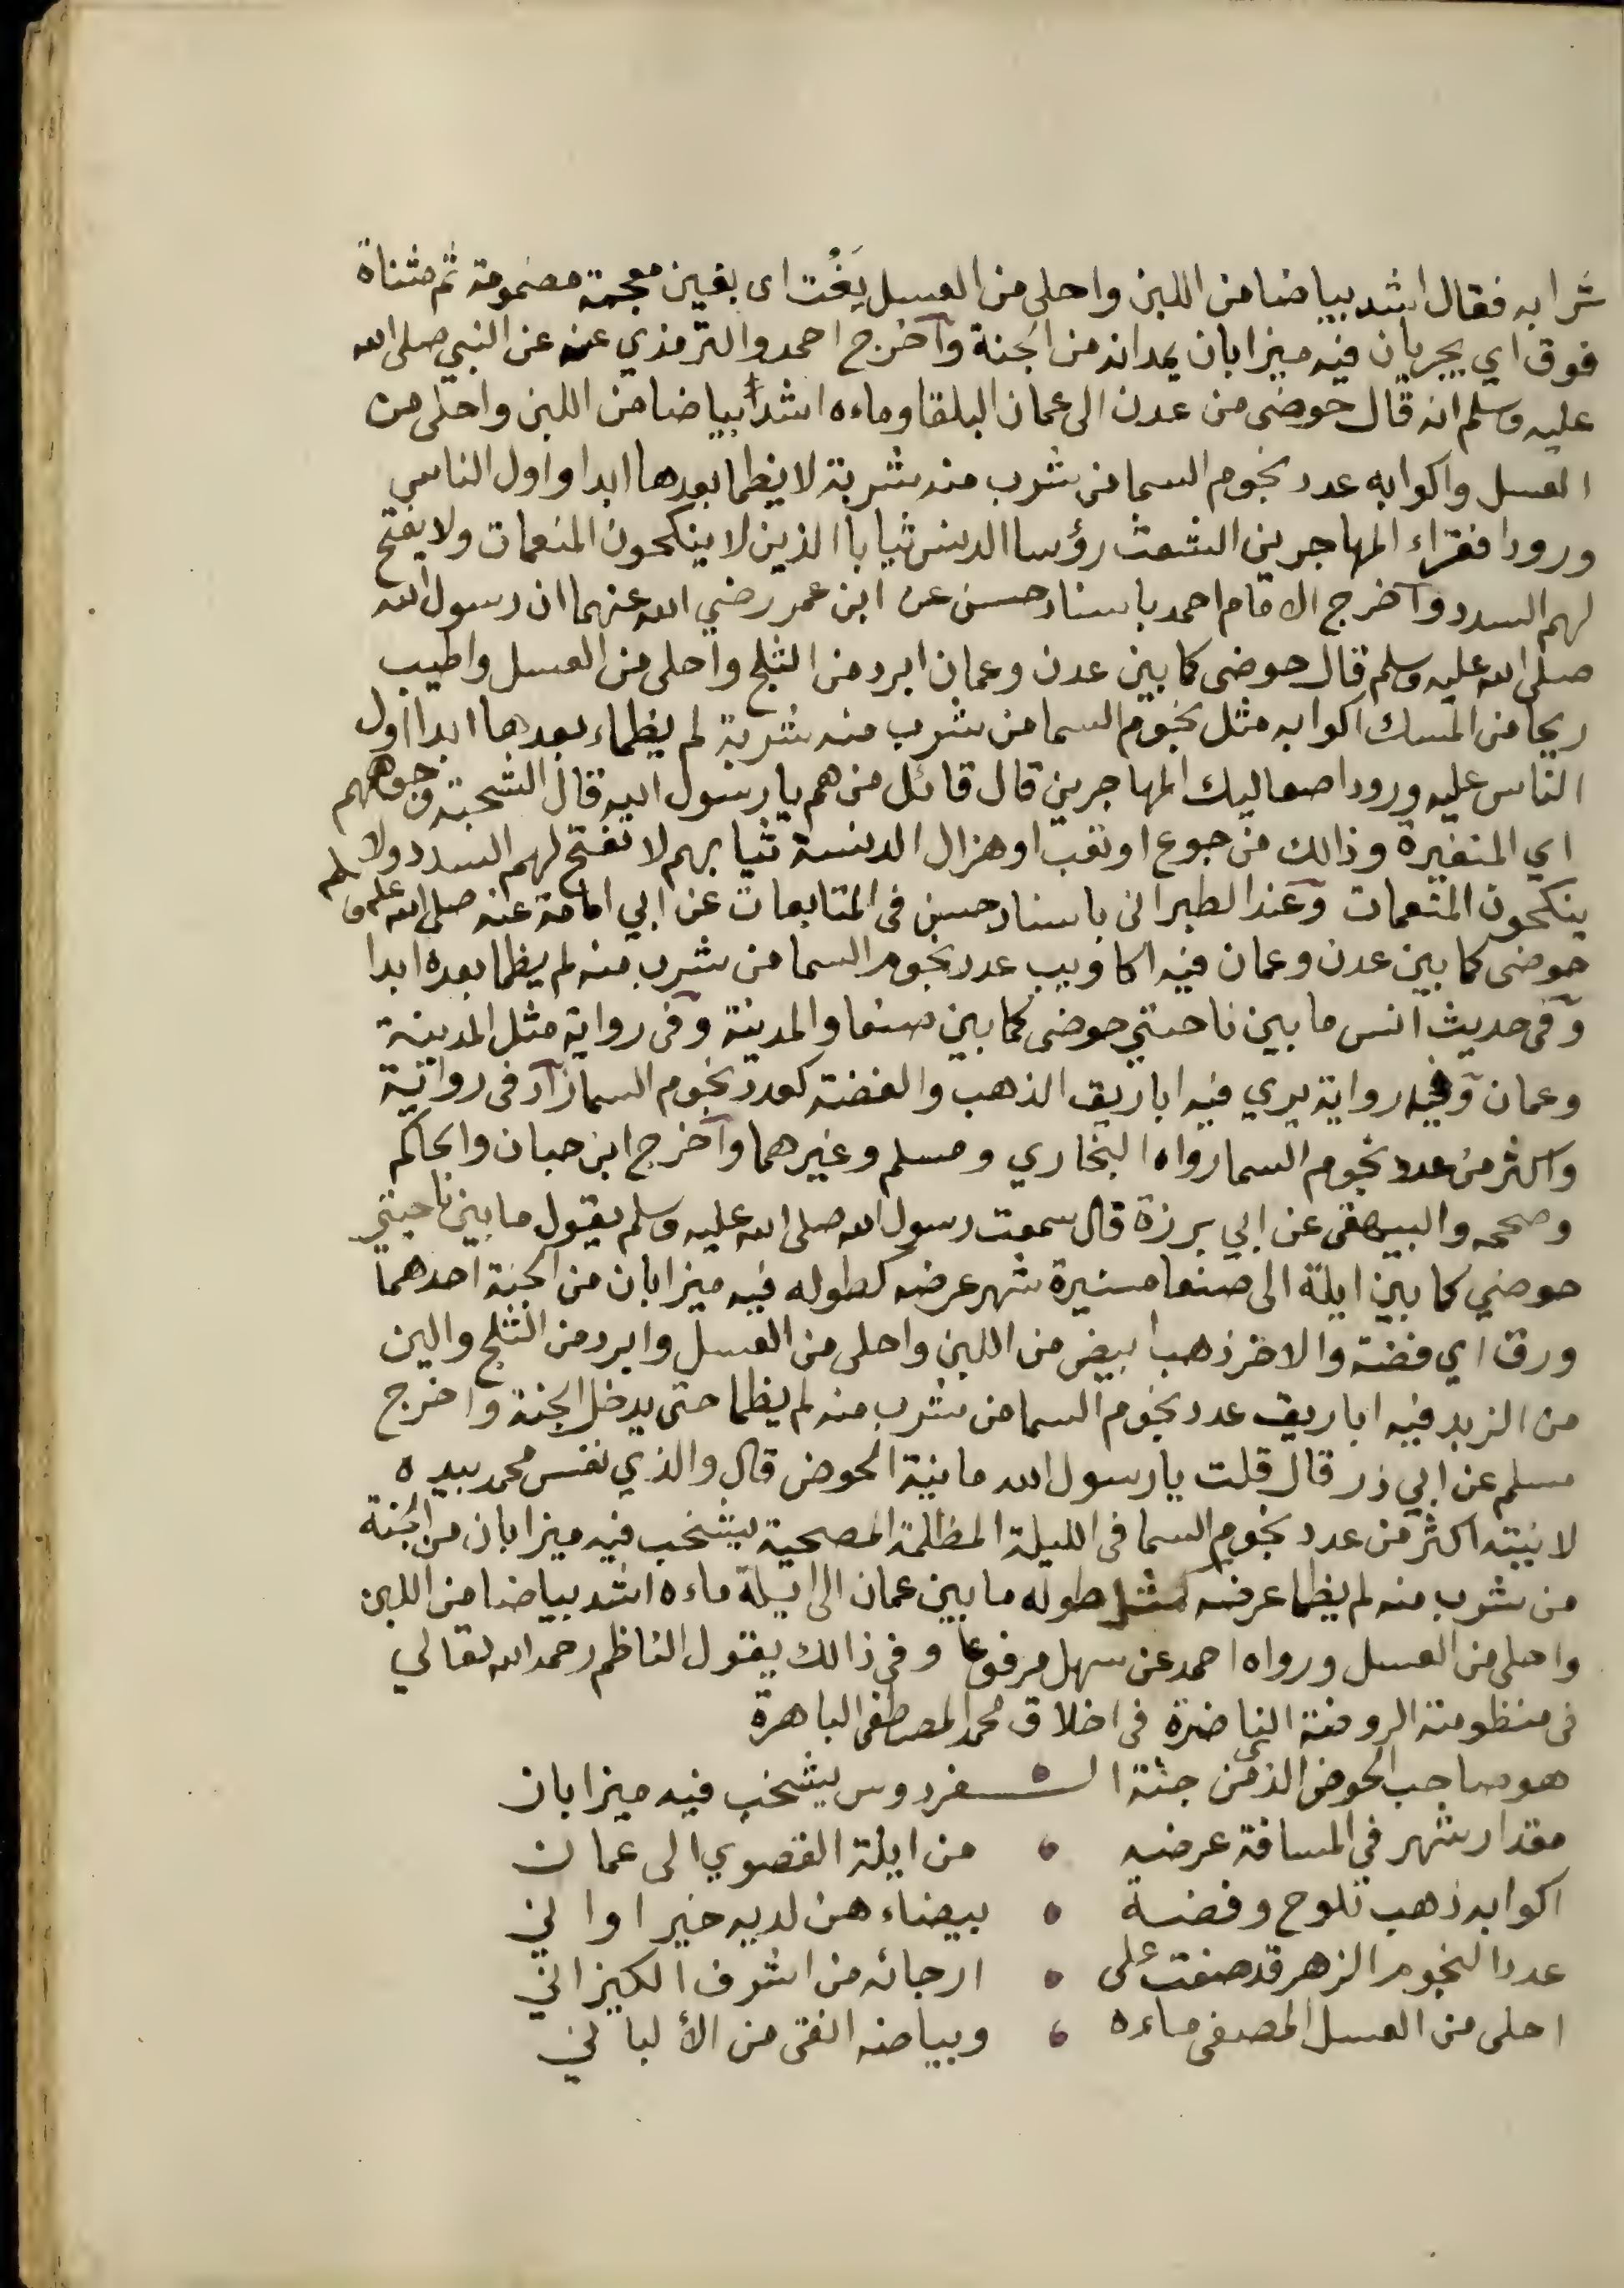 شرابه فقال اشد بياضا من اللبن واحلى من العسل يَغُت اى بغين معجمة مضمومة ثم مثناة
فوق اي يجريان فيه ميزابان يمدانه من الجنة وآخرج احمد والترمذي عنه عن النبي صلى الله
عليه وسلم انه قال حوضى من عدن الى عمان البلقا وماءه اشد بياضا من اللبن واحلى من
العسل واكوابه عدد نجوم السما من شرب منه شربة لا يظما بعدها ابدا واول الناس
ورودا فقراء المهاجرين الشعث رؤسا الدنس ثيابا الذين لا ينكحون المنعمات ولا يفتح
لهم السدد وآخرج الامام احمد باسناد حسن عن ابن عمر رضي الله عنهما ان رسول الله
صلى الله عليه وسلم قال حوضى كما بين عدن وعمان ابرد من الثلج واحلى من العسل واطيب
ريحا من المسك اكوابه مثل نجوم السما من شرب منه شربة لم يظماء بعدها ابدا اول
الناس عليه ورودا صعاليك المهاجرين قال قائل من هم يا رسول الله قال الشحبة وجوههم
اي المتغيرة وذالك من جوع او تعب او هزال الدنسة ثيابهم لا تفتح لهم السدد ولا
ينكحون المنعمات وعند الطبرانى باسناد حسن فى المتابعات عن ابي امامة عنه صلى الله عليه وسلم
حوضى كما بين عدن وعمان فيه اكاويب عدد نجوم السما من شرب منه لم يظما بعده ابدا
وفى حديث انس ما بين ناحيتي حوضى كما بين صنعا والمدينة وفى رواية مثل المدينة
وعمان وفيه رواية يري فيه اباريق الذهب والفضة كعدد نجوم السما زاد فى رواية
واكثر من عدد نجوم السما رواه البخاري ومسلم وغيرهما وآخرج ابن حبان والحاكم
وصححه والبيهقى عن ابي برزة قال سمعت رسول الله صلى الله عليه وسلم يقول ما بين ناحيتي
حوضي كما بين ايلة الى صنعا مسيرة شهر عرضه كطوله فيه ميزابان من الجنة احدهما
ورق اي فضة والاخر ذهب ابيض من اللبن واحلى من العسل وابرد من الثلج والين
من الزبد فيه اباريق عدد نجوم السما من شرب منه لم يظما حتى يدخل الجنة واخرج
مسلم عن ابي ذر قال قلت يا رسول الله ما نية الحوض قال والذي نفس محمد بيده
لا نيته اكثر من عدد نجوم السما فى الليلة المظلمة المصحية يشخب فيه ميزابان من الجنة
من شرب منه لم يظما عرضه مثل طوله ما بين عمان الى ايلة ماءه اشد بياضا من اللبن
واحلى من العسل ورواه احمد عن سهل مرفوعا وفى ذالك يقول الناظم رحمه الله تعالي
فى منظومته الروضة الناضرة فى اخلاق محمد المصطفى الباهرة
هو صاحب الحوض الذي من جنة الـ ـفردوس يشخب فيه ميزابان
مقدار شهر في المسافة عرضه من ايلة القصوي الى عمان
اكوابه ذهب تلوح وفضة بيضاء هن لديه خير اواني
عدد النجوم الزهر قد صفت على ارجائه من اشرف الكيزاني
احلى من العسل المصفى ماءه وبياضه انقى من الألباني